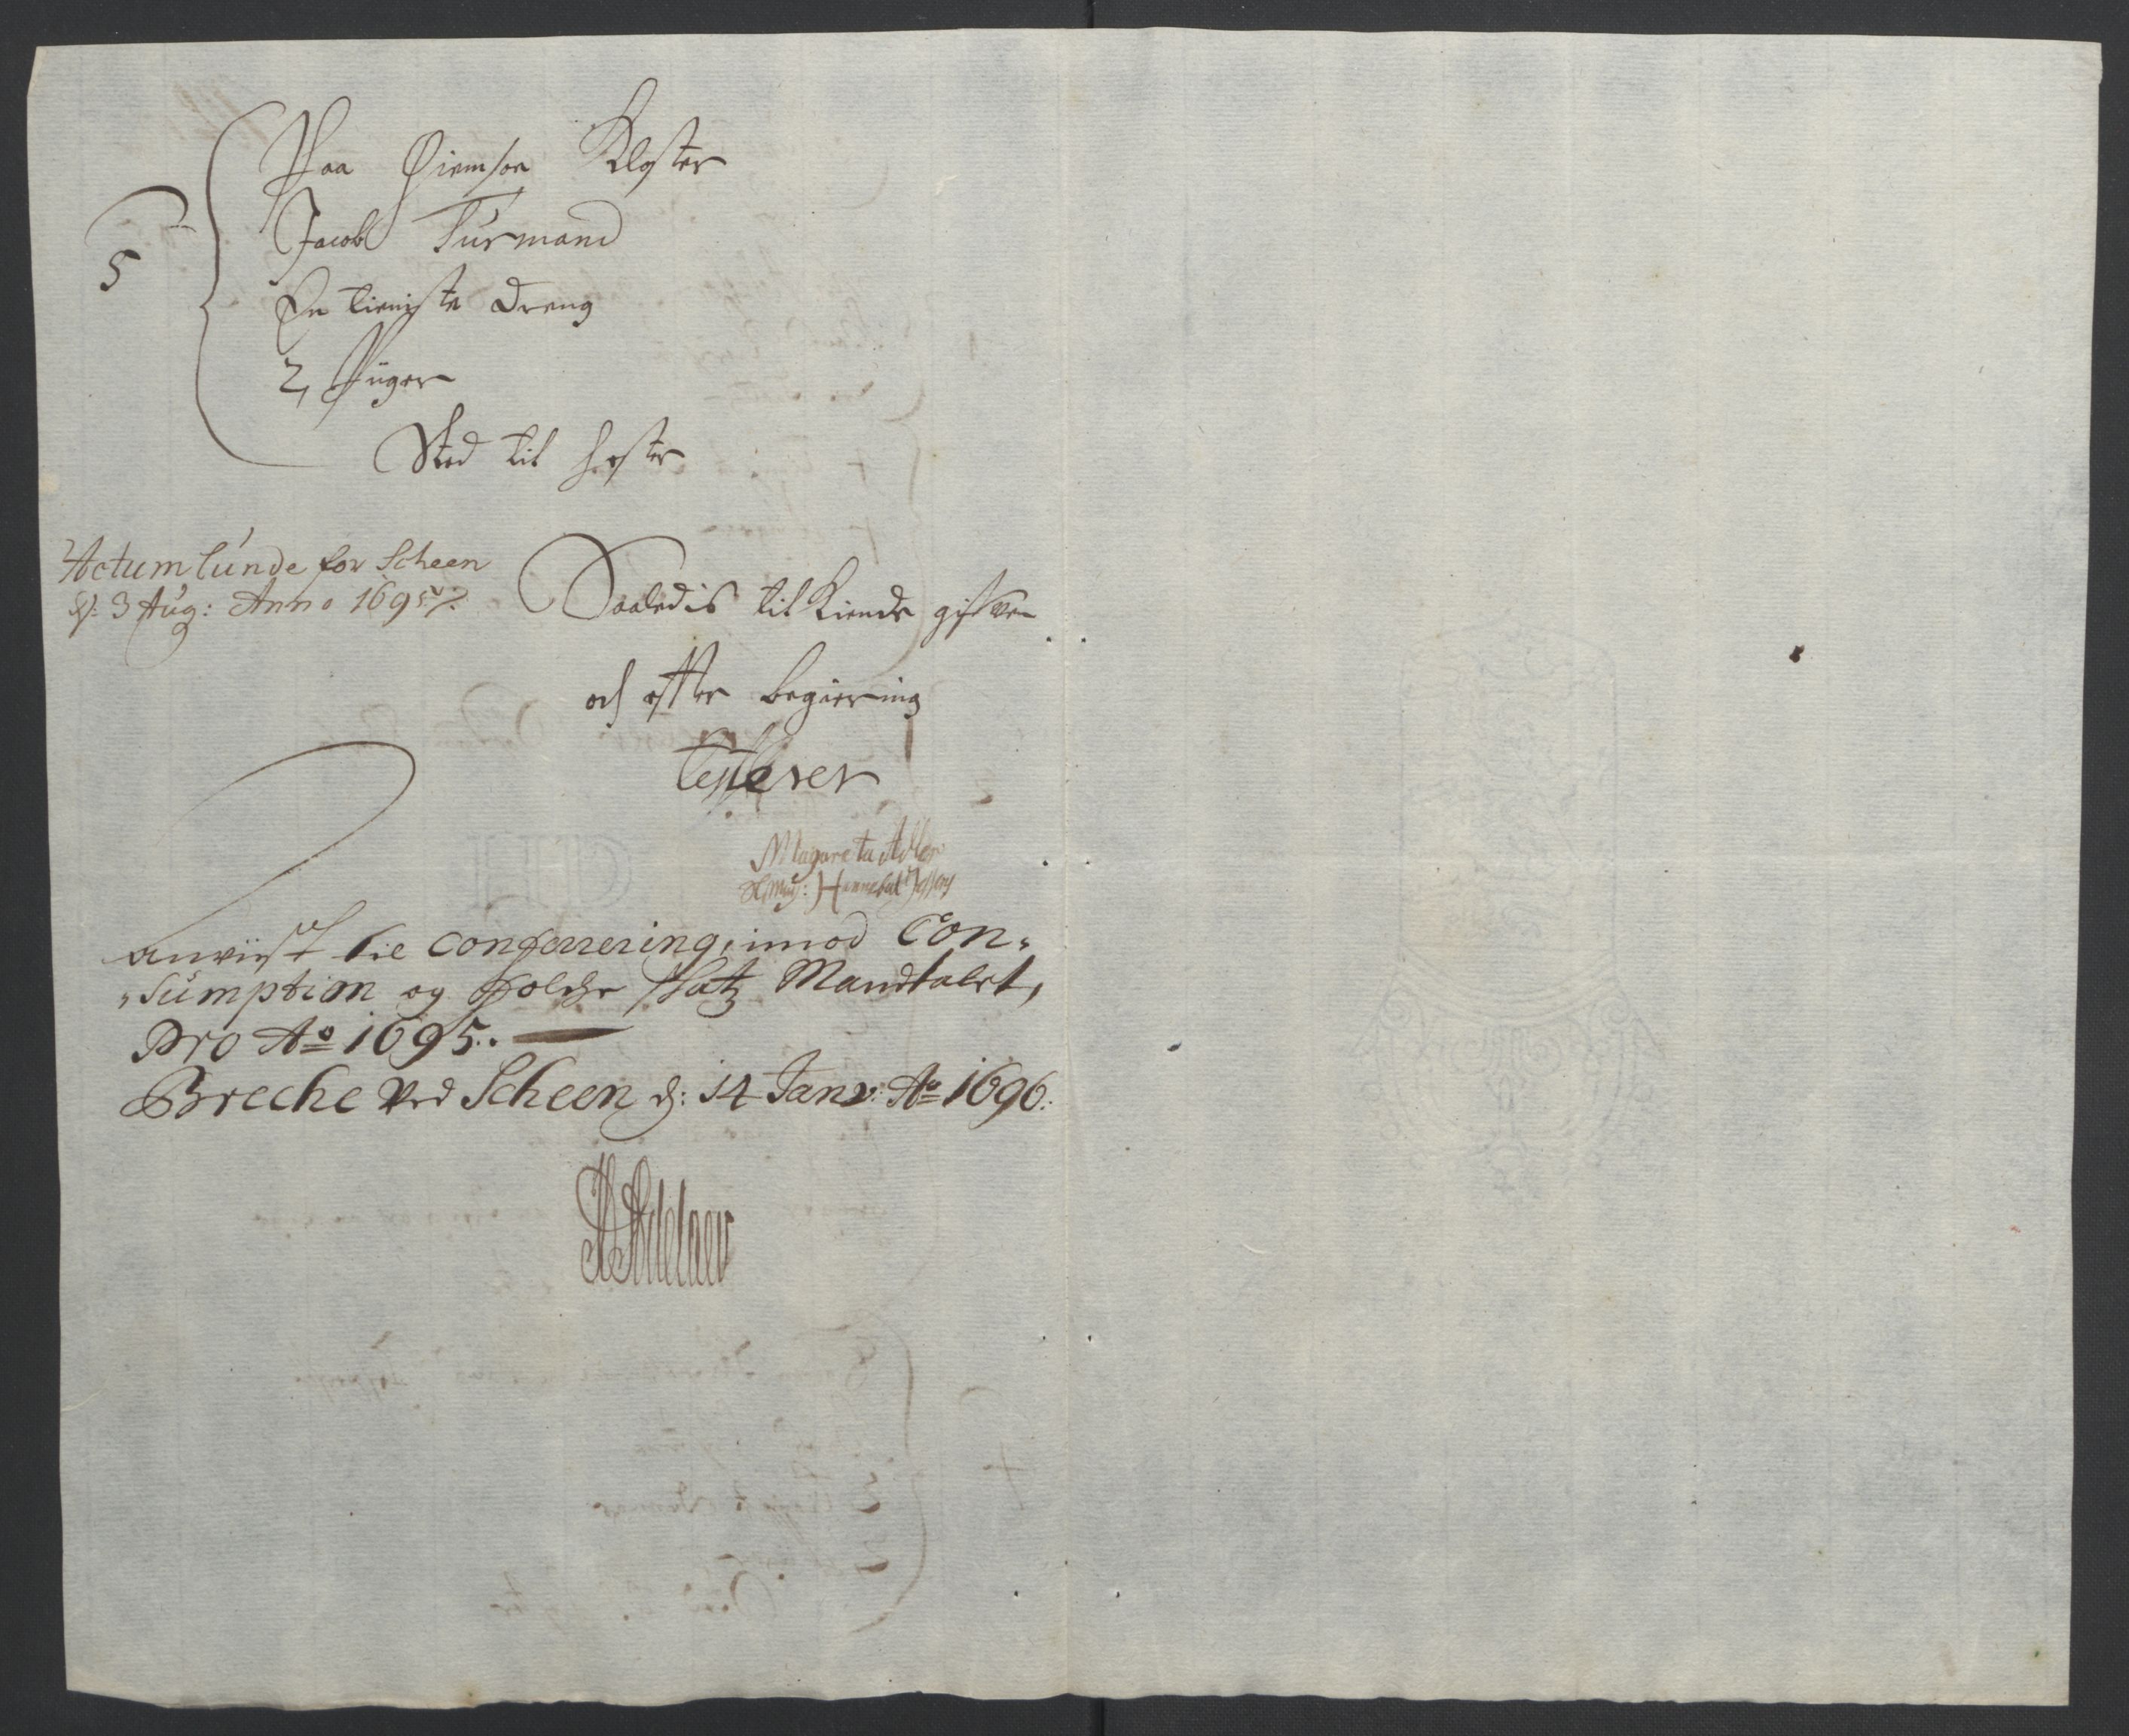 5
Paa Giemsøe Kloster
Jacob Turmand
En tieniste dreng
2, Piiger
Sted til hæster
Actum lunde for Scheen
d: 3 Aug: Anno 1695
Saaledis tilkiende gifwen
och efter begiering
Margareta Adler
anviist til conferering, imod Con-
-sumption og Folche Skatz Mandtalet,
pro Ao 1695.
Breche ved Scheen d: 14 Janv: Ao 1696.